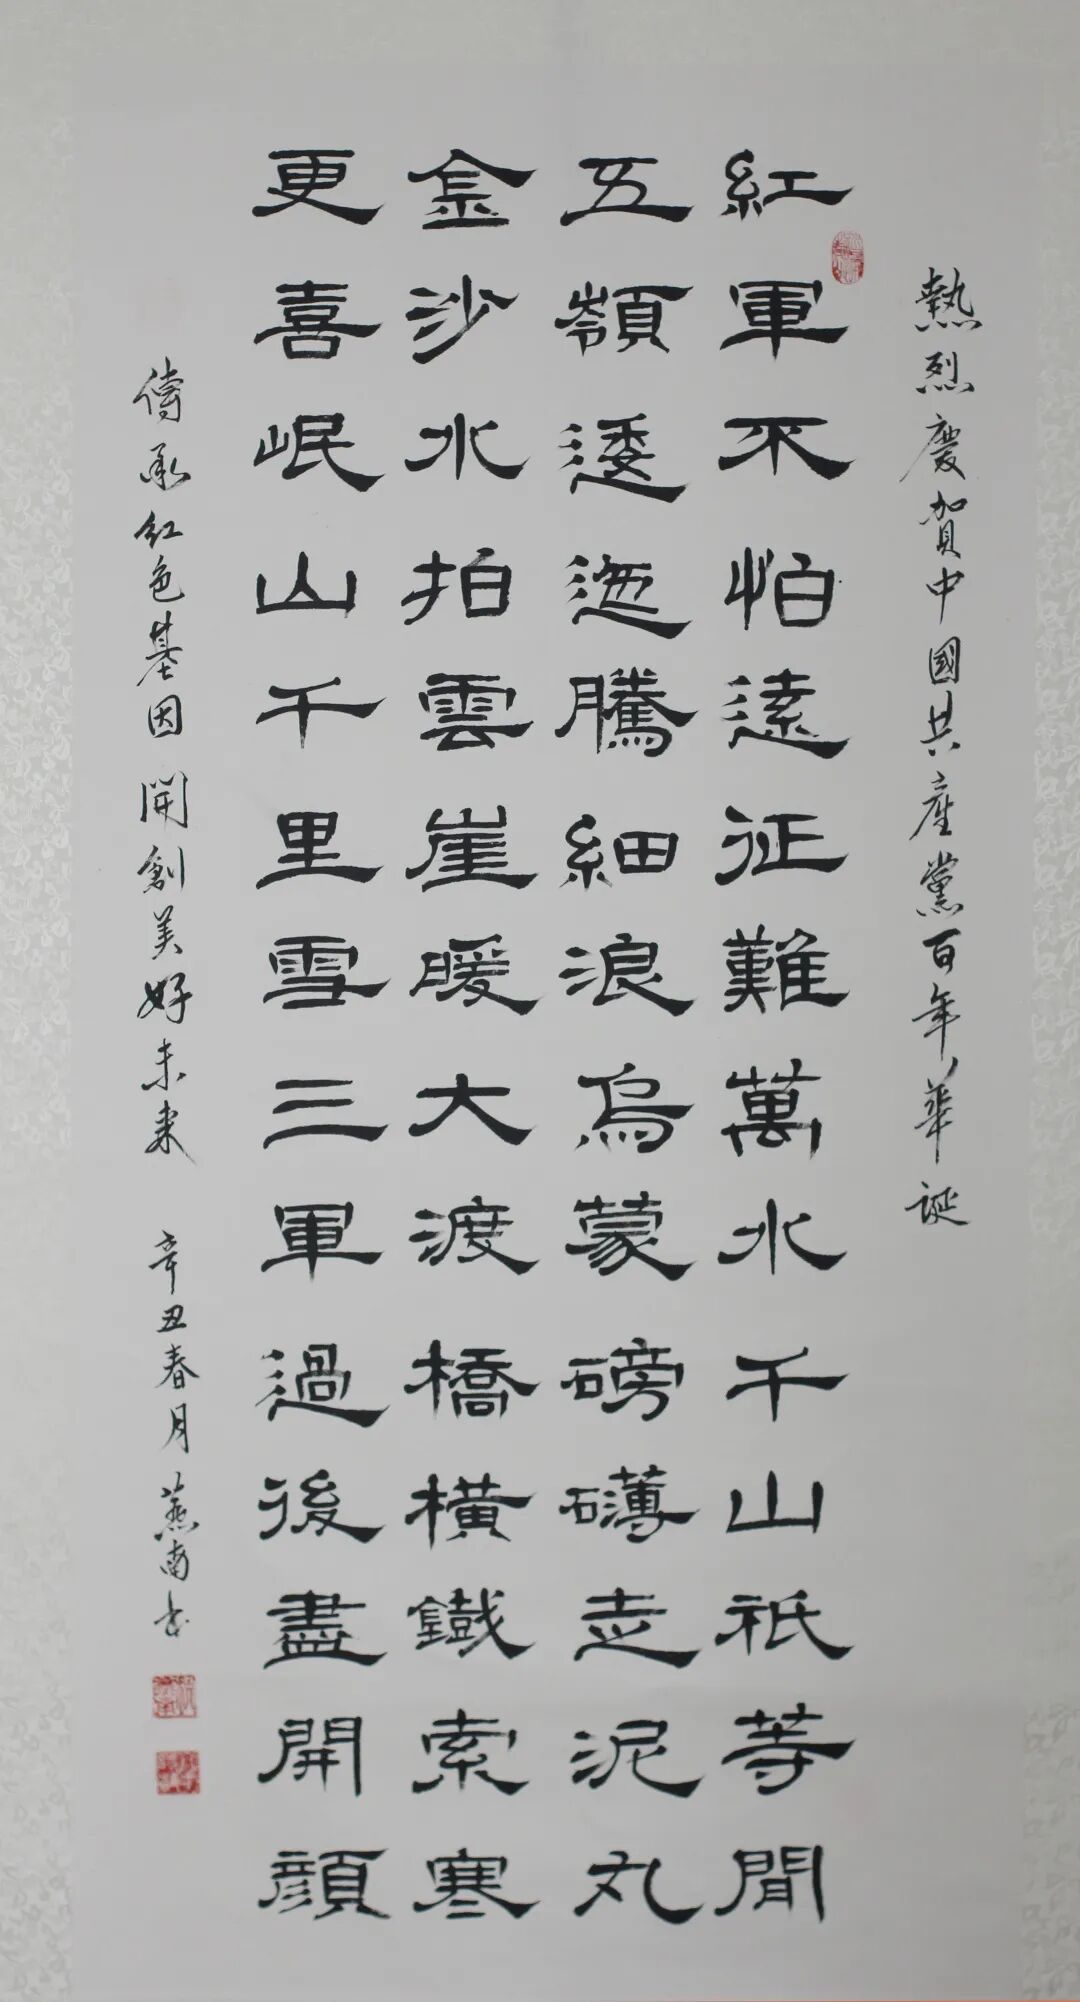 熱烈慶賀中國共產黨百年華誕
紅軍不怕遠征難萬水千山祇等閒
五嶺逶迤騰細浪烏蒙磅礴走泥丸
金沙水拍雲崖暖大渡橋橫鐵索寒
更喜岷山千里雪三軍過後盡開顏
傳承红色基因開創美好未来辛丑春月燕南书